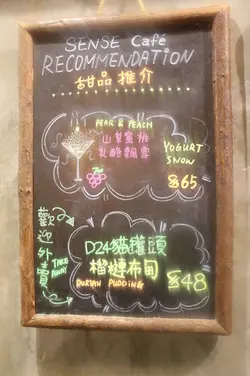 SENSE Café
RECOMMENDATION
甜品推介
PEAR & PEACH
山梨蜜桃
乳酪飄雪
YOGURT
SNOW
$65
歡迎外賣
TAKE
AWAY
D24貓罐頭
榴槤布甸
DURIAN PUDDING
$48